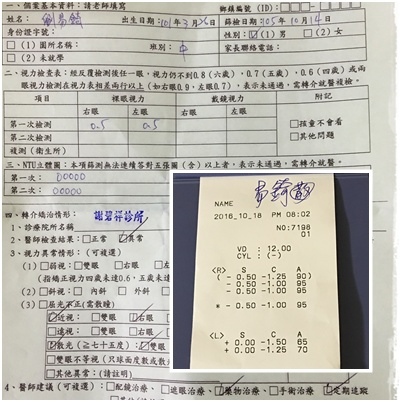 一、個案基本資料：請老師填寫
鄉鎮編號：
姓名： 劉易錡 出生日期：101年3月26日 篩檢日期：105年10月14日
身份證字號： 性別：(1)男 (2)女
(1)園所名稱： 班別：中 家長聯絡電話：
(2)未就學
二、視力檢查表：經反覆檢測後任一眼，視力仍不到0.8(六歲)，0.7(五歲)，0.6(四歲)或兩
眼視力檢測在視力表相差兩行以上(如右眼0.9，左眼0.7)，表示未通過，需轉介就醫複檢。
項目 裸眼視力 戴鏡視力 附記
右眼 左眼 右眼 左眼
第一次檢測 0.5 0.5 孩童不會看
第二次檢測 其他問題
複測(衛生所)
三、NTU立體圖：本項篩測無法連續答對五張圖(含)以上者，表示未通過，需轉介就醫。
第一次：00000
第二次：00000
四、轉介矯治情形：
1、診療院所名稱
2、醫師檢查結果：正常 異常
3、視力異常情形：(可複選)
(1)弱視：雙眼 右眼 左眼
(2)斜視：內斜 外斜
(3)屈光不正(需散瞳)
近視：雙眼 右眼
遠視：雙眼 右眼
散光(≧七十五度)：雙眼
雙眼不等視(只球面度數或散光
其他異常：(請註明)
4、醫師建議(可複選)：配鏡治療、遮眼治療、藥物治療、手術治療、定期追蹤
NAME
2016_10_18 PM 08:02
NO:7198
01
VD : 12.00
CYL : (-)
<R> S C A
(- 0.50 -1.25 90)
- 0.50 -1.00 95
- 0.50 -1.00 95
* - 0.50 -1.00 95
<L> S C A
+ 0.00 -1.50 65
+ 0.00 -1.25 70